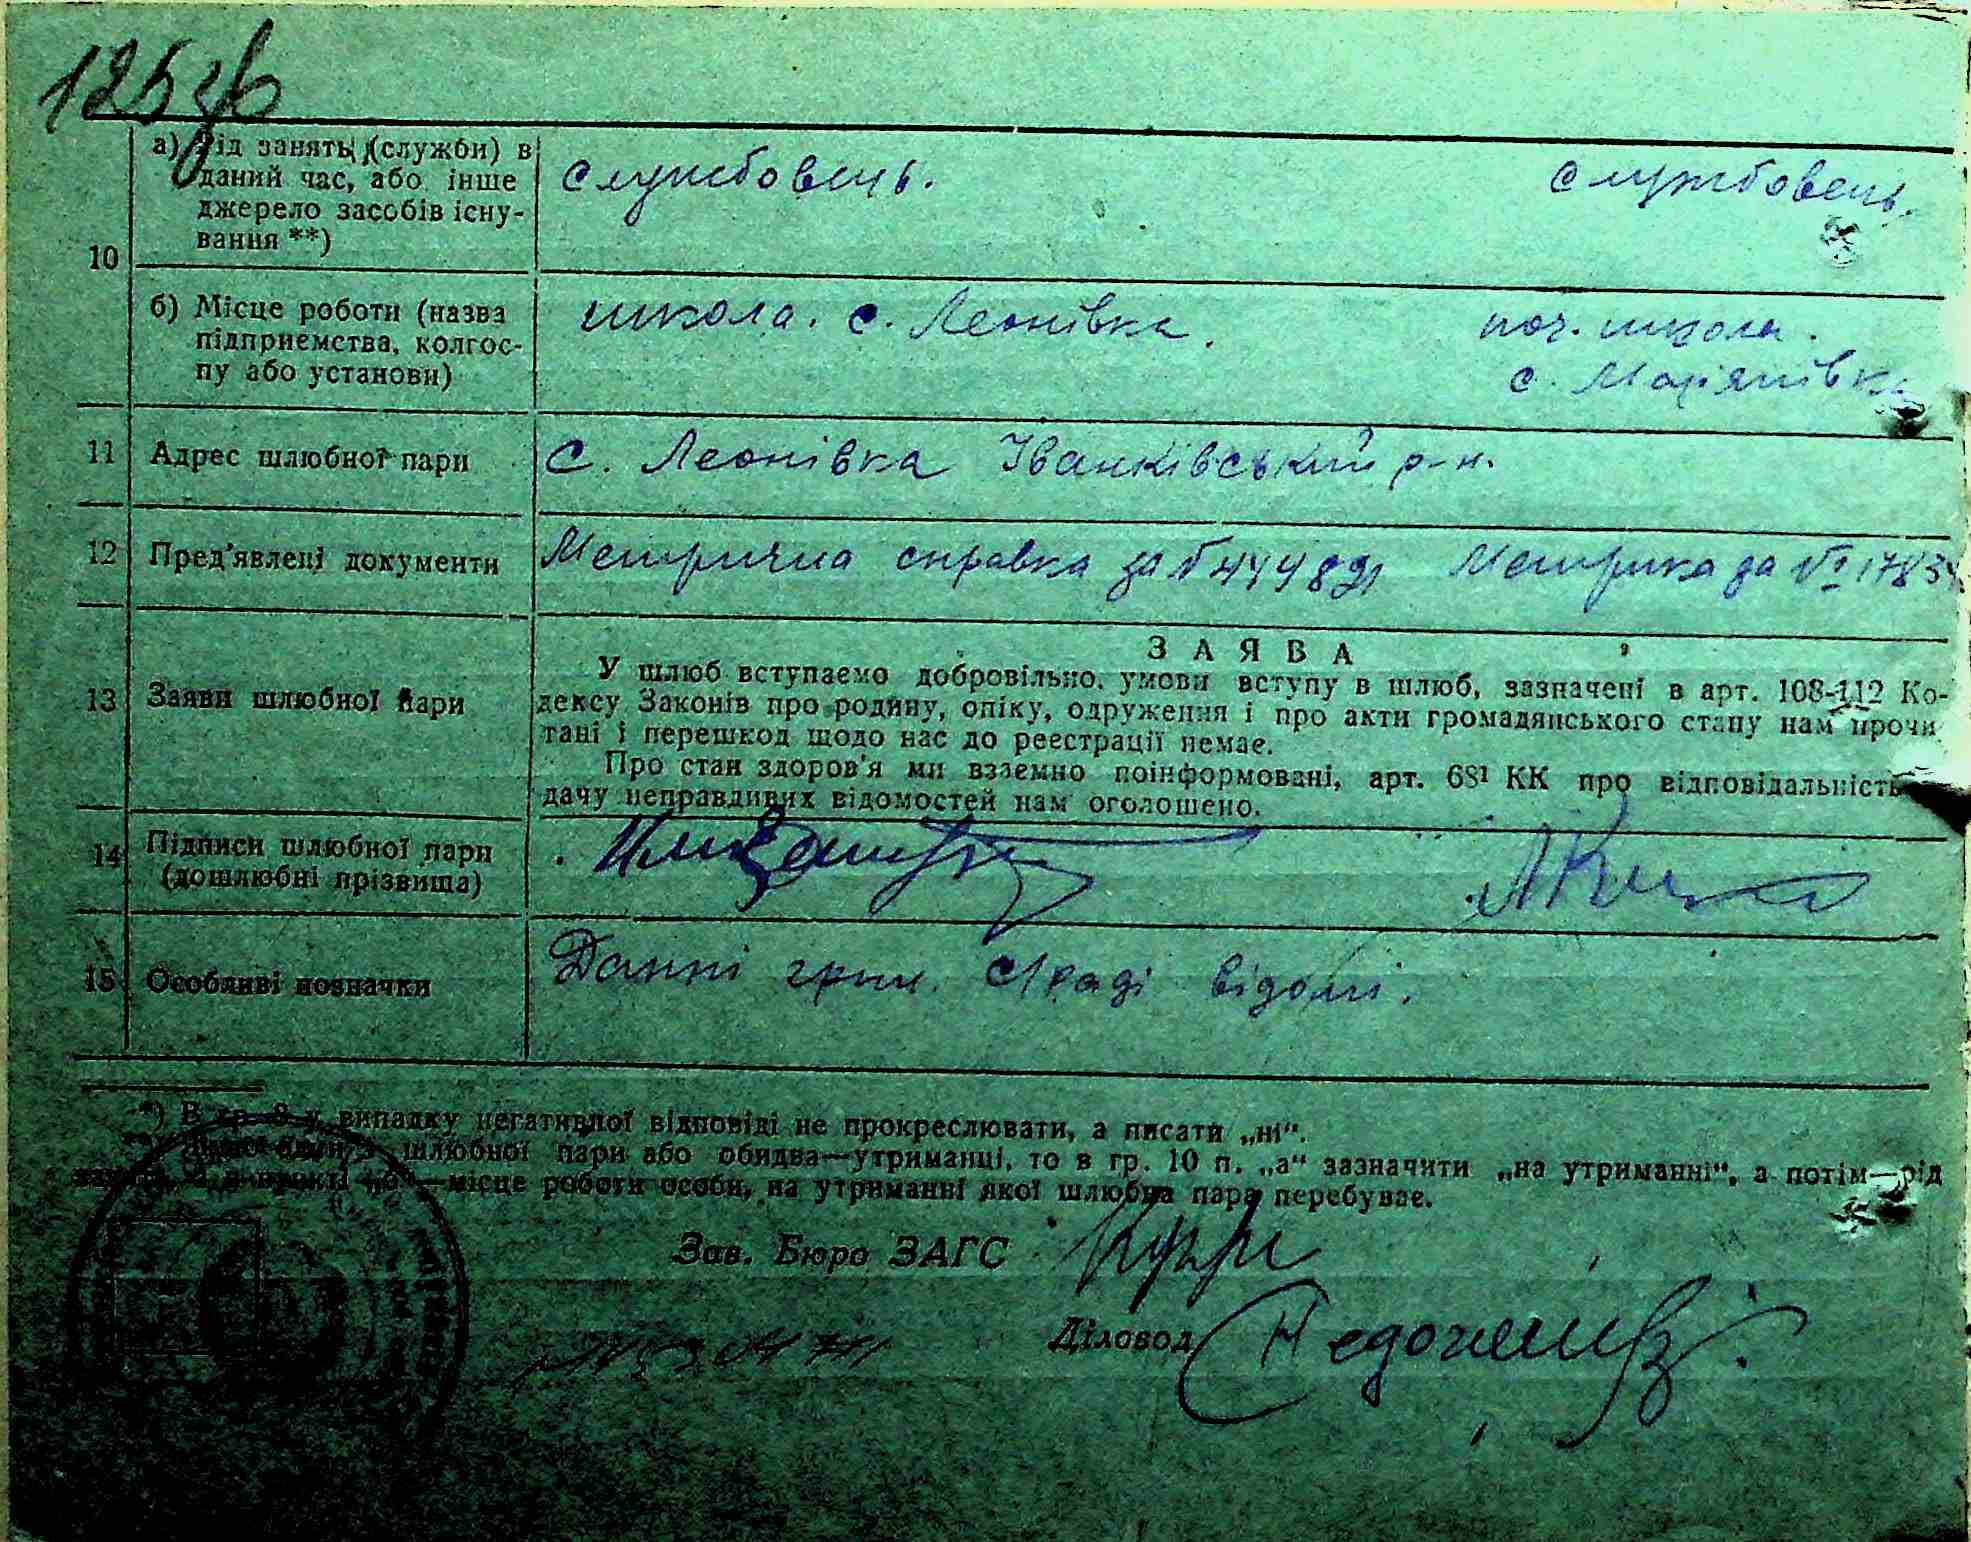 125 зв
а) Рід занять (служби) в даний час, або інше джерело засобів існування **)
службовець.
службовець.
10
б) Місце роботи (назва підприємства, колгоспу або установи)
школа. с. Леонівка.
поч. школа.
с. Мар'янівка
11 Адрес шлюбної пари
с. Леонівка Іванківський р-н.
12 Пред'явлені документи
Метрична справка за № Метрика за №
13 Заяви шлюбної пари
ЗАЯВА
У шлюб вступаємо добровільно, умови вступу в шлюб, зазначені в арт. 108-112 Ко-
дексу Законів про родину, опіку, одруження і про акти громадянського стану нам прочи
тані і перешкод щодо нас до реєстрації немає.
Про стан здоров'я ми взаємно поінформовані, арт. 68¹ КК про відповідальність
дачу неправдивих відомостей нам оголошено.
14 Підписи шлюбної пари
(дошлюбні прізвища)
15 Особливі позначки
Данні С/раді відомі.
*) В гр. 8 у випадку негативної відповіді не прокреслювати, а писати „ні“.
шлюбної пари або обидва—утриманці, то в гр. 10 п. „а“ зазначити „на утриманні“, а потім—рід
—місце роботи особи, на утриманні якої шлюбна пара перебуває.
Зав. Бюро ЗАГС
Діловод